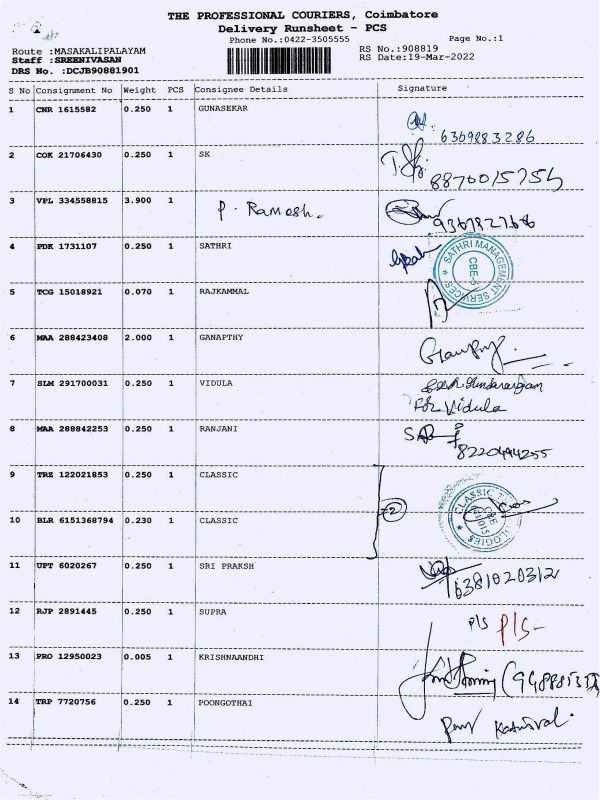 THE PROFESSIONAL COURIERS, Coimbatore
Delivery Runsheet - PCS
Phone No.:0422-3505555
Page No.:1
Route :MASAKALIPALAYAM
RS No.:908819
Staff :SREENIVASAN
RS Date:19-Mar-2022
DRS No. :DCJB90881901
S No Consignment No Weight PCS Consignee Details Signature
1 CNR 1615582 0.250 1 GUNASEKAR
6369883286
2 COK 21706430 0.250 1 SK
8870015754
3 VPL 334558815 3.900 1 P. Ramesh.
4 PDK 1731107 0.250 1 SATHRI
SATHRI MANAGEMENT SERVICES
CBE-5
5 TCG 15018921 0.070 1 RAJKAMMAL
6 MAA 288423408 2.000 1 GANAPTHY
7 SLM 291700031 0.250 1 VIDULA
For Vidula
8 MAA 288842253 0.250 1 RANJANI
8220494255
9 TRZ 122021853 0.250 1 CLASSIC
10 BLR 6151368794 0.230 1 CLASSIC
2
CLASSIC
CBE
11 UPT 6020267 0.250 1 SRI PRAKSH
6381020312
12 RJP 2891445 0.250 1 SUPRA
P/S P/S-
13 PRO 12950023 0.005 1 KRISHNAANDHI
14 TRP 7720756 0.250 1 POONGOTHAI